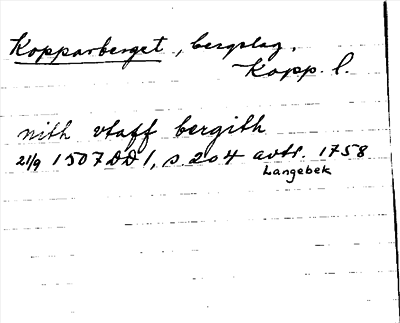 Kopparberget, bergslag,
Kopp. l.
nith vtaff bergith
21/9 1507 DD 1, s 204 avtr. 1758
Langebek